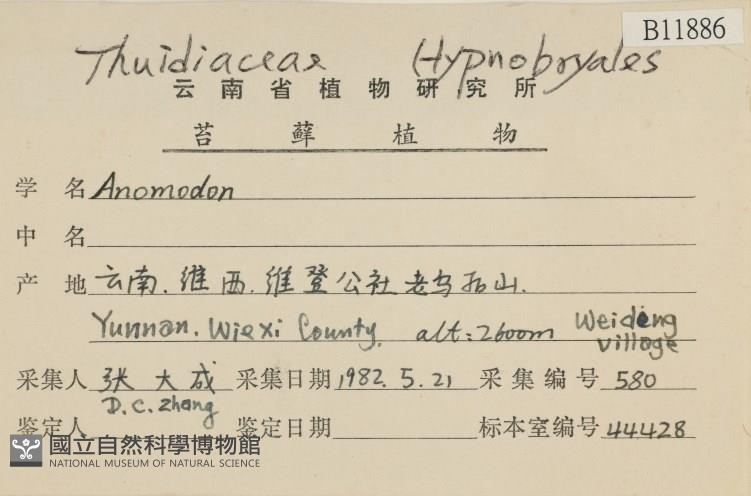 B11886
Thuidiaceae Hypnobryales
云南省植物研究所
苔藓植物
学名 Anomodon
中名
产地 云南.维西.维登公社老乌后山.
Yunnan. Wiexi County. alt:2600m Weideng village
采集人 张大成 采集日期 1982.5.21 采集编号 580
D.C.Zhang
鉴定人 鉴定日期 标本室编号 44428
國立自然科學博物館
NATIONAL MUSEUM OF NATURAL SCIENCE